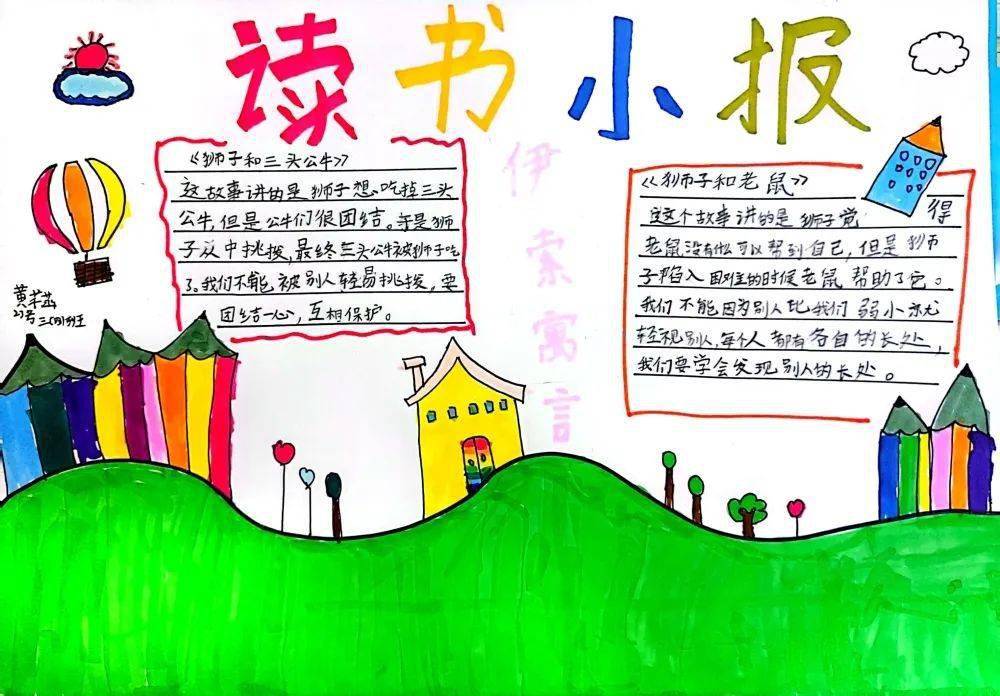 读书小报
伊索寓言
《狮子和三头公牛》
这故事讲的是狮子想吃掉三头
公牛,但是公牛们很团结。于是狮
子从中挑拨,最终三头公牛被狮子吃
了。我们不能被别人轻易挑拨,要
团结一心,互相保护。
《狮子和老鼠》
这个故事讲的是狮子觉得
老鼠没有什么可以帮到自己,但是狮
子陷入困难的时候老鼠帮助了它。
我们不能因为别人比我们弱小就
轻视别人,每个人都有各自的长处,
我们要学会发现别人的长处。
黄
号三(四)班